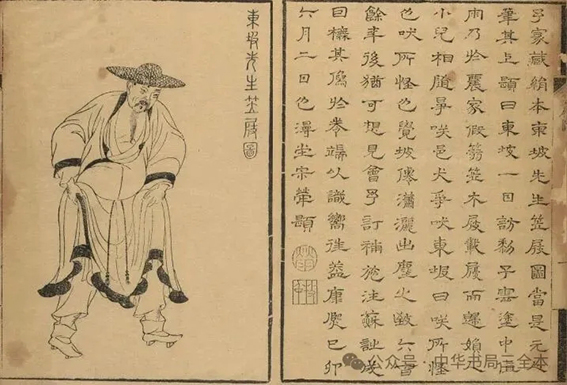 予家藏絹本東坡先生笠屐圖當是元人
筆其上題曰東坡一日訪黎子雲途中
雨乃於農家假篛笠木屐戴履而歸婦人
小兒相隨爭笑邑犬爭吠東坡曰笑所怪
也吠所怪也覺坡僊瀟灑出塵之致六百
餘年後猶可想見會予訂補施注蘇詩成
囙橅其像於卷端以識嚮往康熙己卯
六月二日也漫堂宋犖題
東坡先生笠屐圖
公众号·中华书局三全本